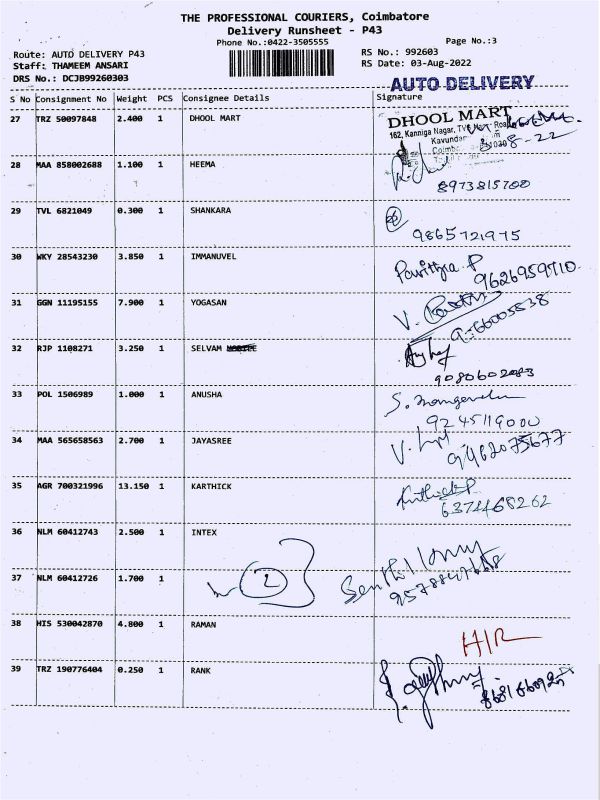 THE PROFESSIONAL COURIERS, Coimbatore
Delivery Runsheet - P43
Phone No.:0422-3505555
Page No.:3
Route: AUTO DELIVERY P43
RS No.: 992603
Staff: THAMEEM ANSARI
RS Date: 03-Aug-2022
DRS No.: DCJB99260303
AUTO DELIVERY
S No Consignment No Weight PCS Consignee Details Signature
27 TRZ 50097848 2.400 1 DHOOL MART
DHOOL MART
162, Kanniga Nagar,
28 MAA 858002688 1.100 1 HEEMA
8973815700
29 TVL 6821049 0.300 1 SHANKARA
9865721975
30 WKY 28543230 3.850 1 IMMANUVEL
Pavithra P
9626959710
31 GGN 11195155 7.900 1 YOGASAN
9566005838
32 RJP 1108271 3.250 1 SELVAM
9080602083
33 POL 1506989 1.000 1 ANUSHA
9245119000
34 MAA 565658563 2.700 1 JAYASREE
35 AGR 700321996 13.150 1 KARTHICK
6374468262
36 NLM 60412743 2.500 1 INTEX
37 NLM 60412726 1.700 1
2
38 HIS 530042870 4.800 1 RAMAN
H/R
39 TRZ 190776404 0.250 1 RANK